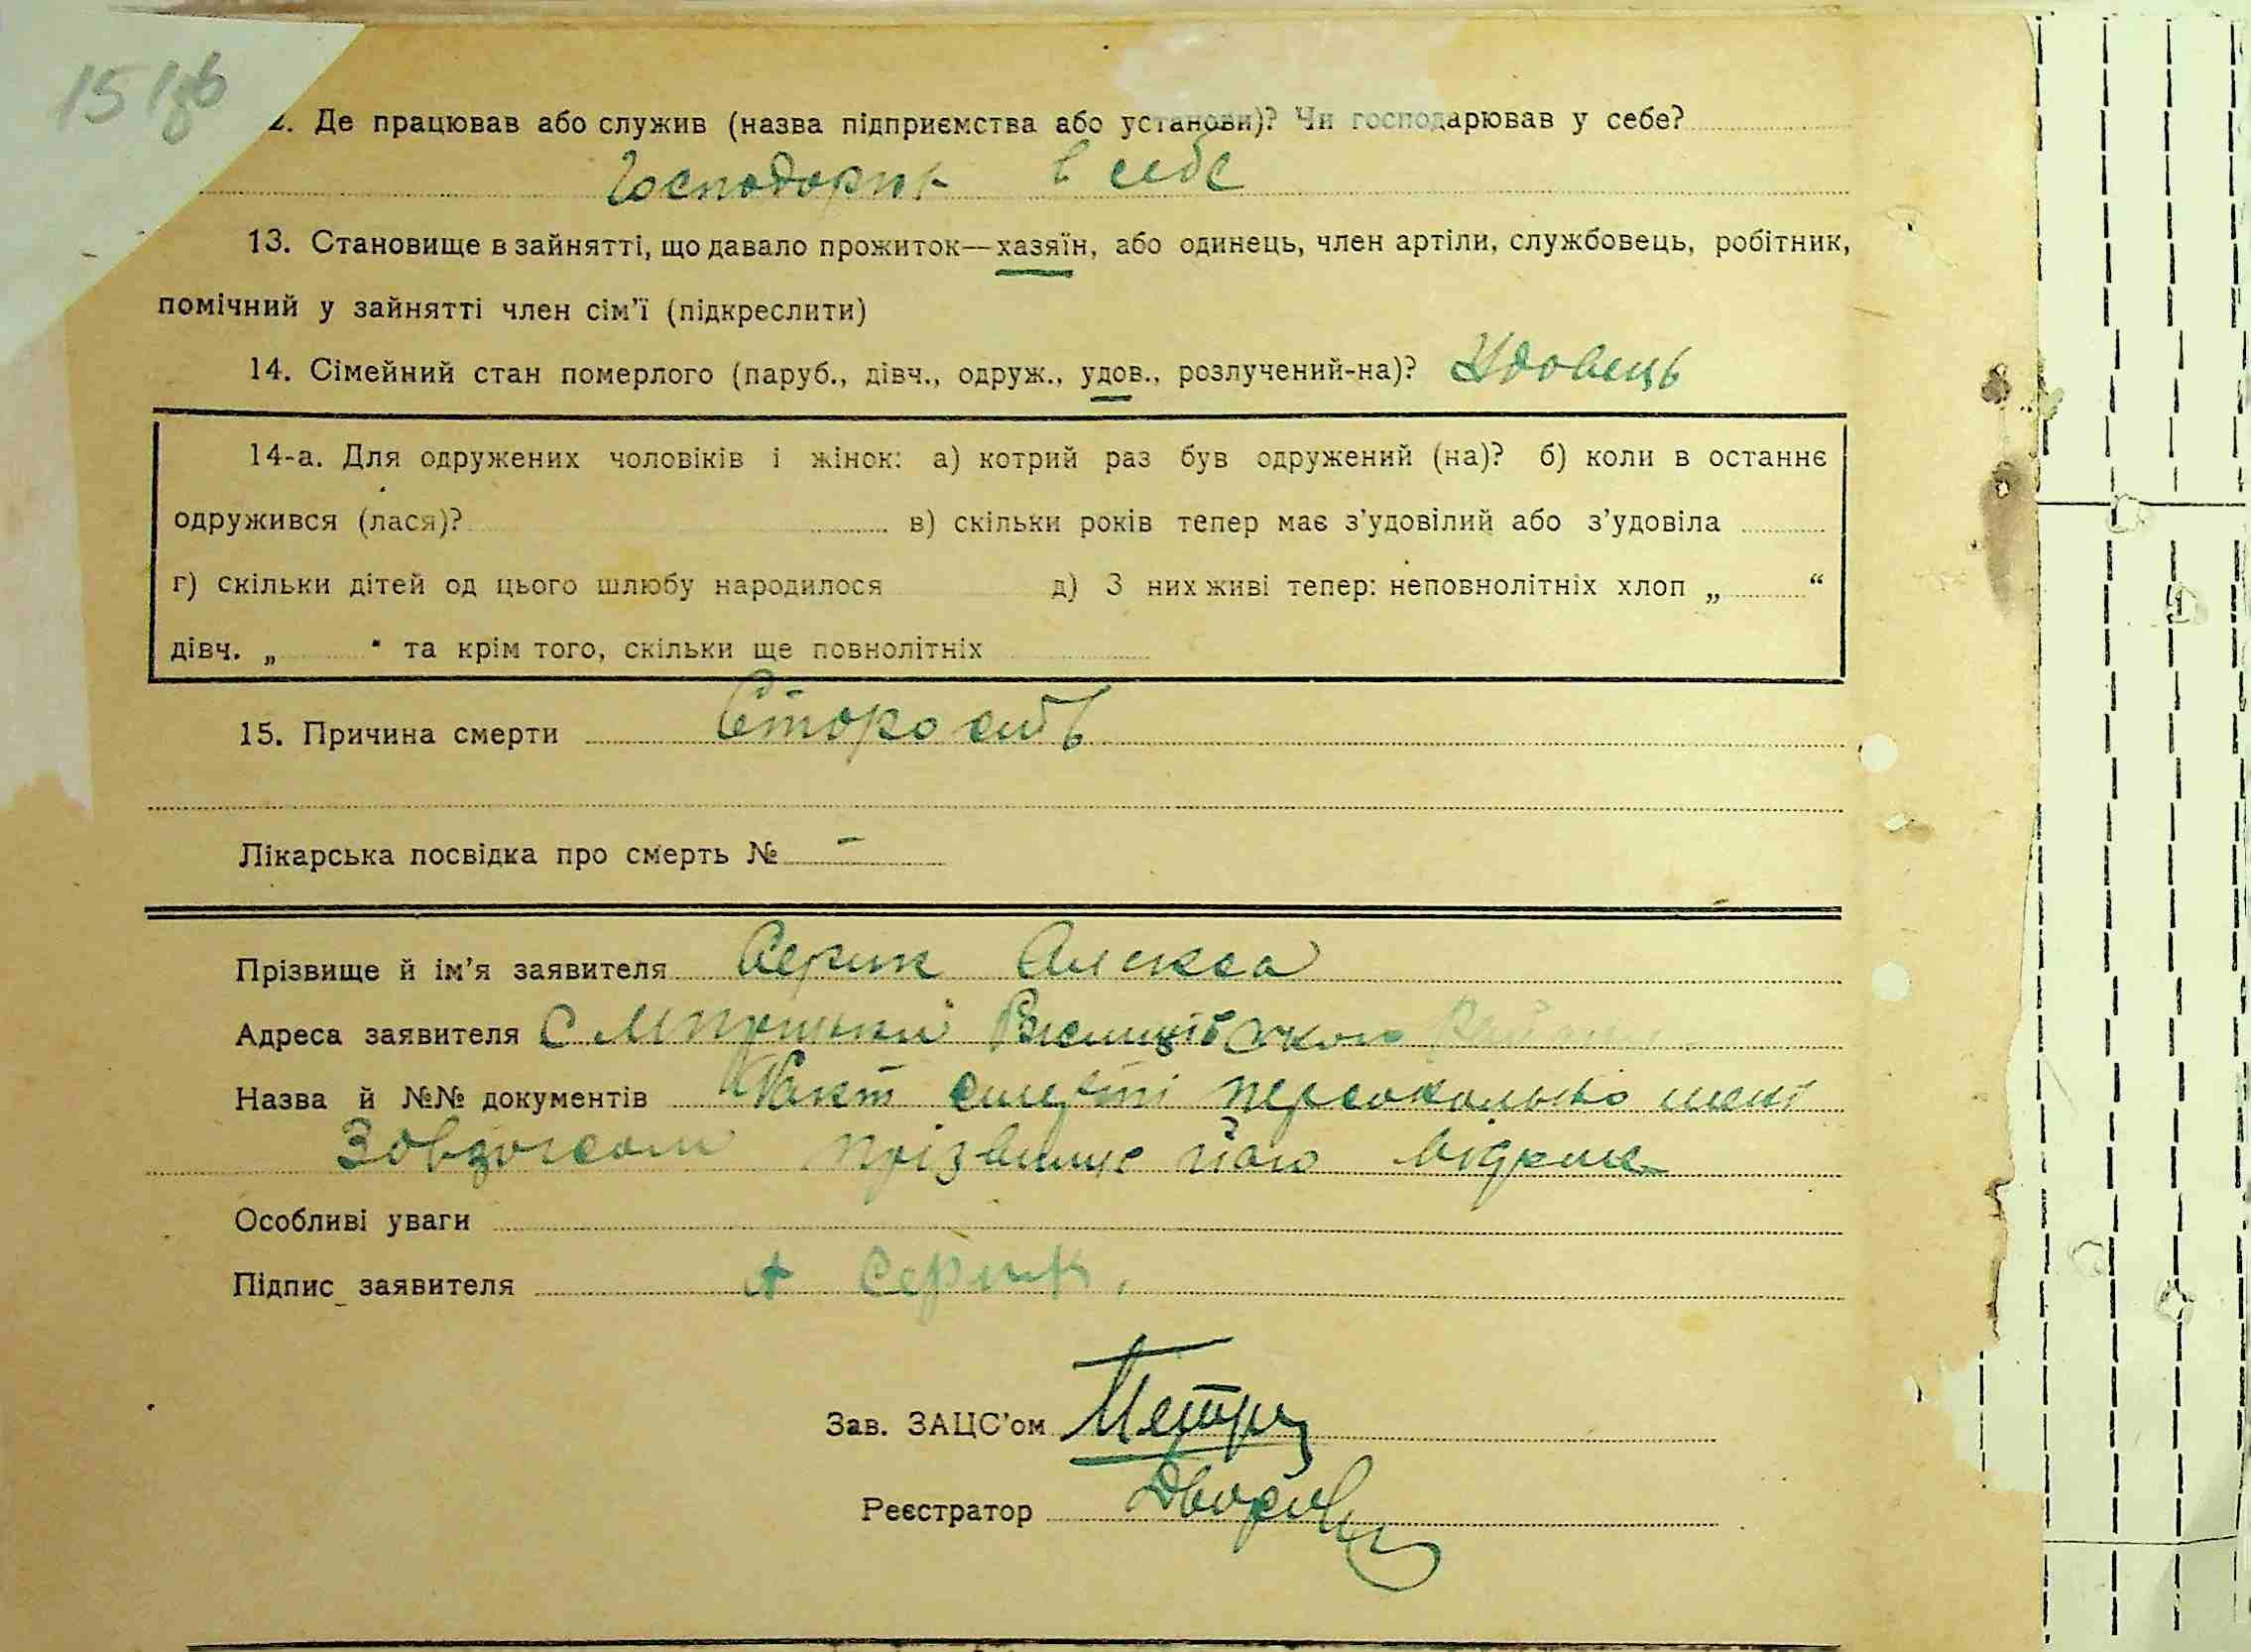 151зв
2. Де працював або служив (назва підприємства або установи)? Чи господарював у себе?
Господорик в себе
13. Становище в зайнятті, що давало прожиток—хазяїн, або одинець, член артіли, службовець, робітник,
помічний у зайнятті член сім’ї (підкреслити)
14. Сімейний стан померлого (паруб., дівч., одруж., удов., розлучений-на)? Удовець
14-а. Для одружених чоловіків і жінок: а) котрий раз був одружений (на)? б) коли в останнє
одружився (лася)? в) скільки років тепер має з’удовілий або з’удовіла
г) скільки дітей од цього шлюбу народилося д) З них живі тепер: неповнолітніх хлоп „ “
дівч. „ “ та крім того, скільки ще повнолітніх
15. Причина смерти Старость
Лікарська посвідка про смерть № -
Прізвище й ім’я заявителя Серик Алекса
Адреса заявителя С
Назва й №№ документів Факт смерті персонально мені
прізвище його відоме
Особливі уваги
Підпис заявителя А Серик.
Зав. ЗАЦС’ом
Реєстратор